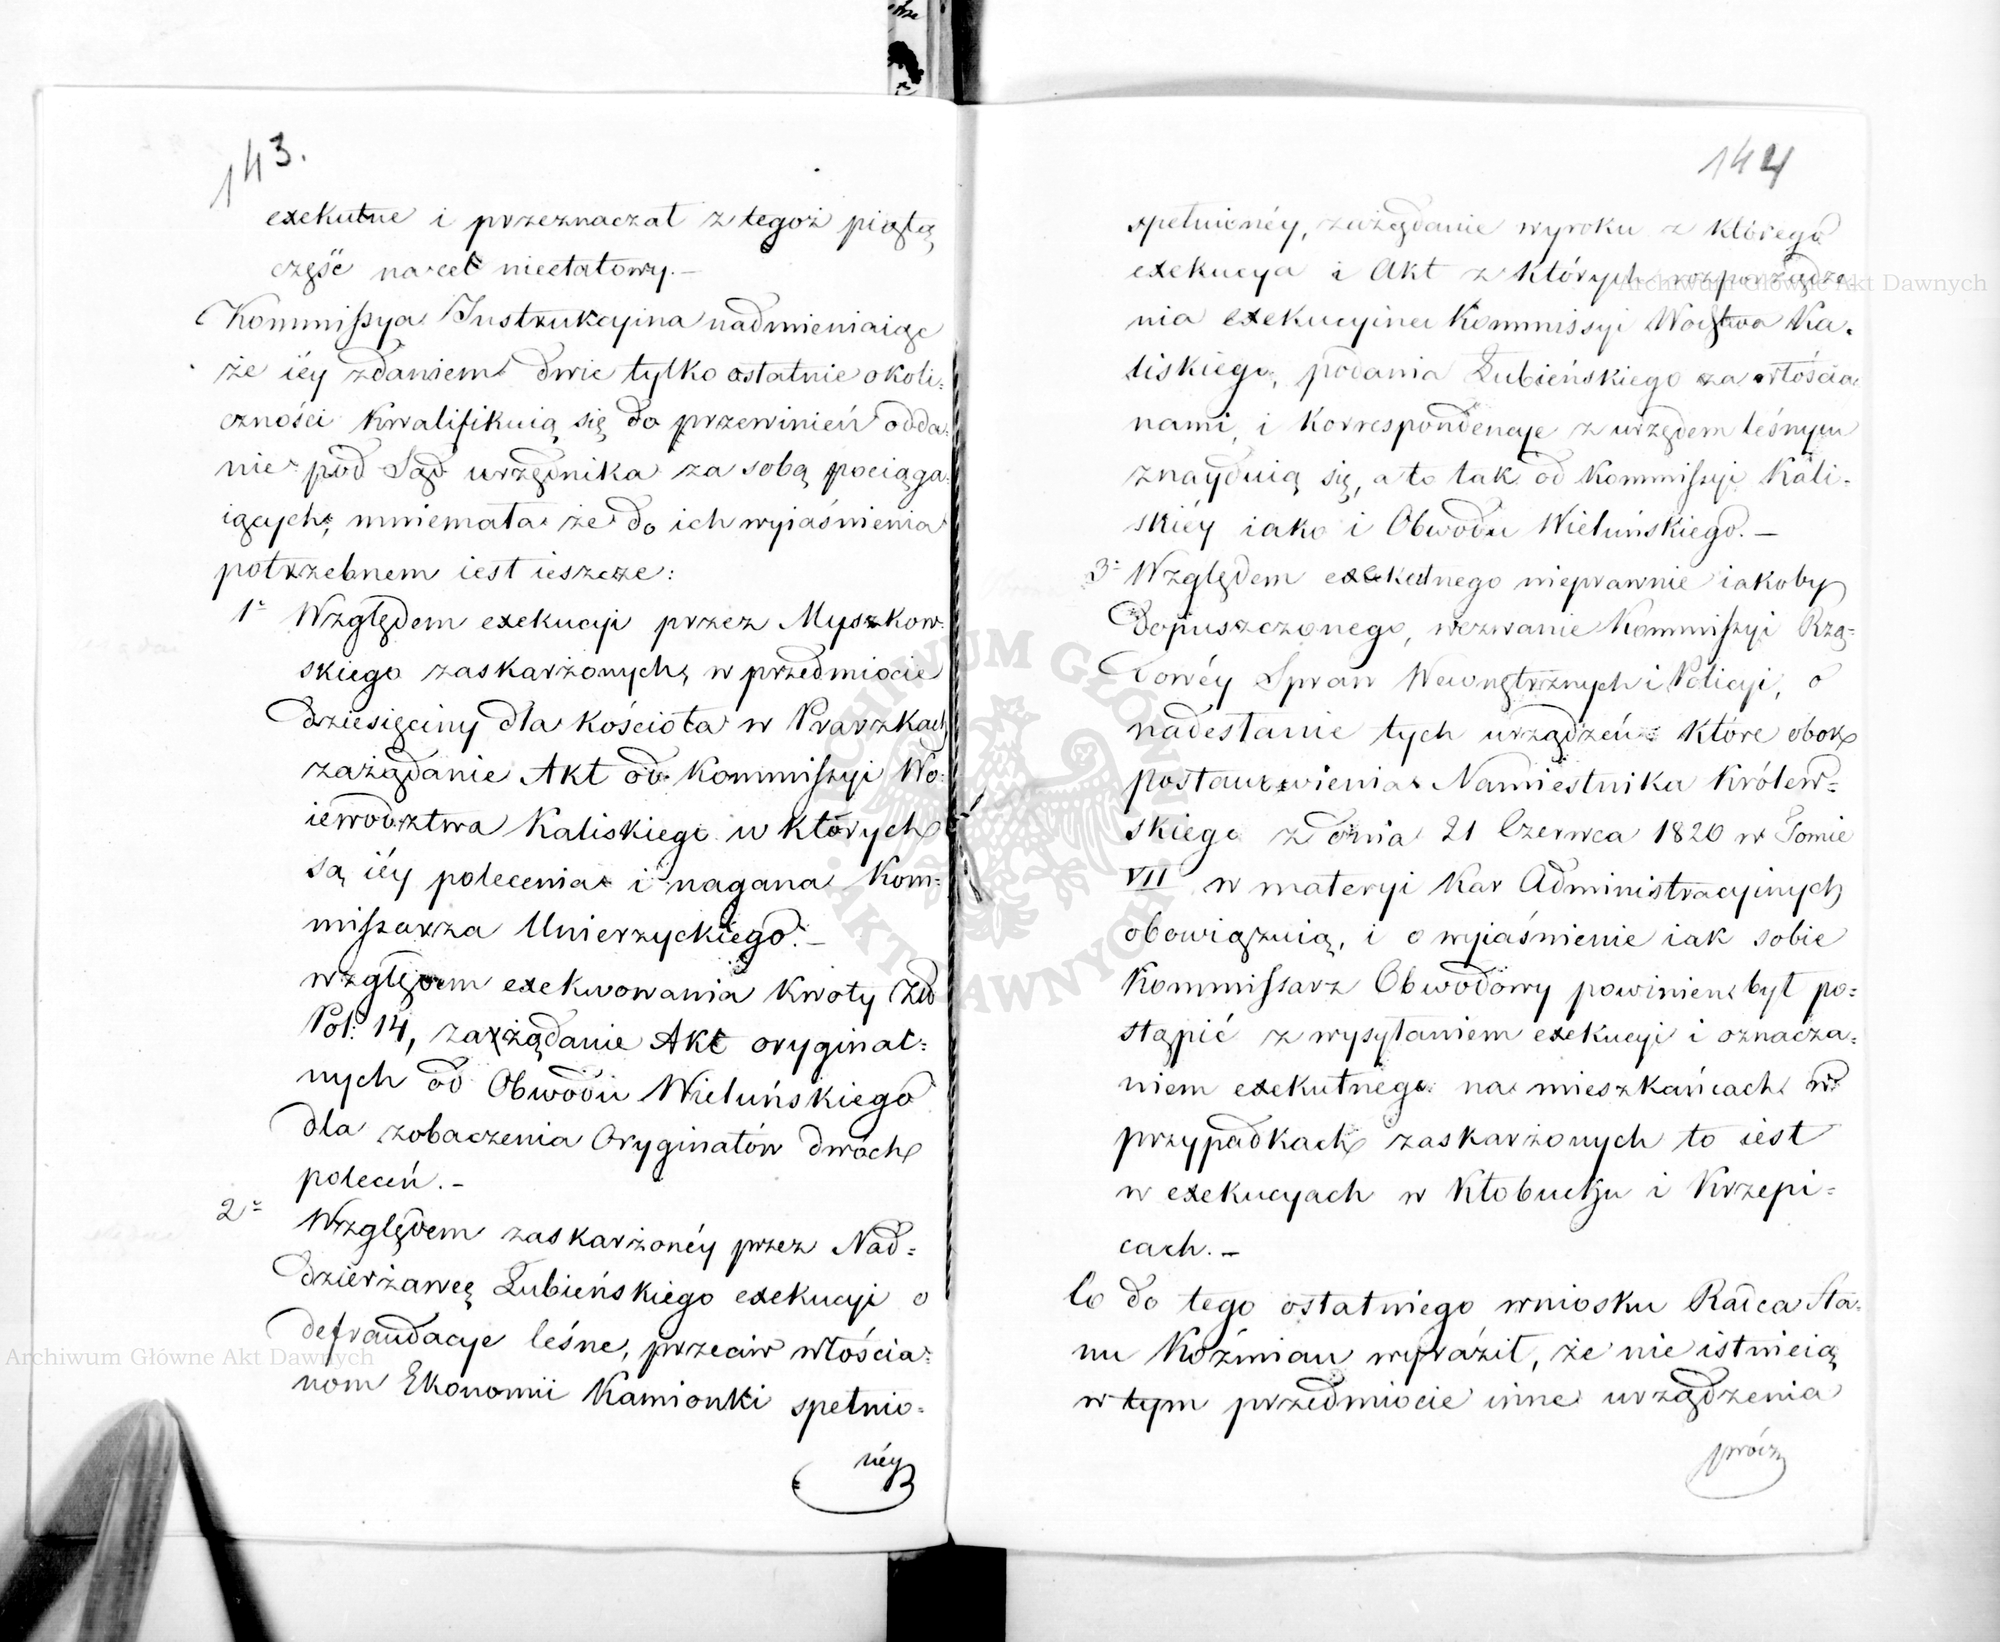 143.
exekutne i przeznaczał z tegoż piątą
część na cel nieetatowy. —
Kommissya Instrukcyina nadmieniaiąc
że iéy zdaniem dwie tylko ostatnie okoli:
czności kwalifikuią się do przewinień odda:
nie pod Sąd urzędnika za sobą pociąga:
iących, mniemała że do ich wyiaśnienia
potrzebnem iest ieszcze:
1° Względem exekucyi przez Myszkow:
skiego zaskarżonych, w przedmiocie
dziesięciny dla kościoła w Praszkach
zażądanie Akt od Kommissyi Wo:
iewództwa Kaliskiego w których
są iéy polecenia i nagana Kom:
missarza Unierzyckiego. —
względem exekwowania kwoty Zło
Pol: 14, zażądanie Akt oryginal:
nych od Obwodu Wieluńskiego
dla zobaczenia Oryginałów dwóch
poleceń. —
2° Względem zaskarżonéy przez Nad=
dzierżawcę Łubieńskiego exekucyi o
defraudacye leśne, przeciw włościa:
nom Ekonomii Kamionki spełnio:
néy
144
spełnionéy, zażądanie wyroku z którego
exekucya i Akt z których rozporządze
nia exekucyine Kommissyi Woiztwa Ka:
liskiego, podania Łubieńskiego za włościa
nami, i korrespondencye z urzędem leśnym
znayduią się, a to tak od Kommissyi Kali:
skiéy iako i Obwodu Wieluńskiego. —
3° Względem exekutnego nieprawnie iakoby
dopuszczonego, wezwanie Kommissyi Rzą=
dowéy Spraw Wewnętrznych i Policyi, o
nadesłanie tych urządzeń które obok
postanowienia Namiestnika Królew=
skiego z dnia 21 Czerwca 1820 w Tomie
VII w materyi Kar Administracyinych
obowiązuią, i o wyiaśnienie iak sobie
Kommissarz Obwodowy powinien był po:
stąpić z wysyłaniem exekucyi i oznacza:
niem exekutnego na mieszkańcach w
przypadkach zaskarżonych to iest
w exekucyach w Kłobucku i Krzepi=
cach. —
Co do tego ostatniego wniosku Radca Sta:
nu Koźmian wyraził, że nie istnieią
w tym przedmiocie inne urządzenia
prócz
Archiwum Główne Akt Dawnych
Archiwum Główne Akt Dawnych
ARCHIWUM GŁÓWNE
AKT DAWNYCH